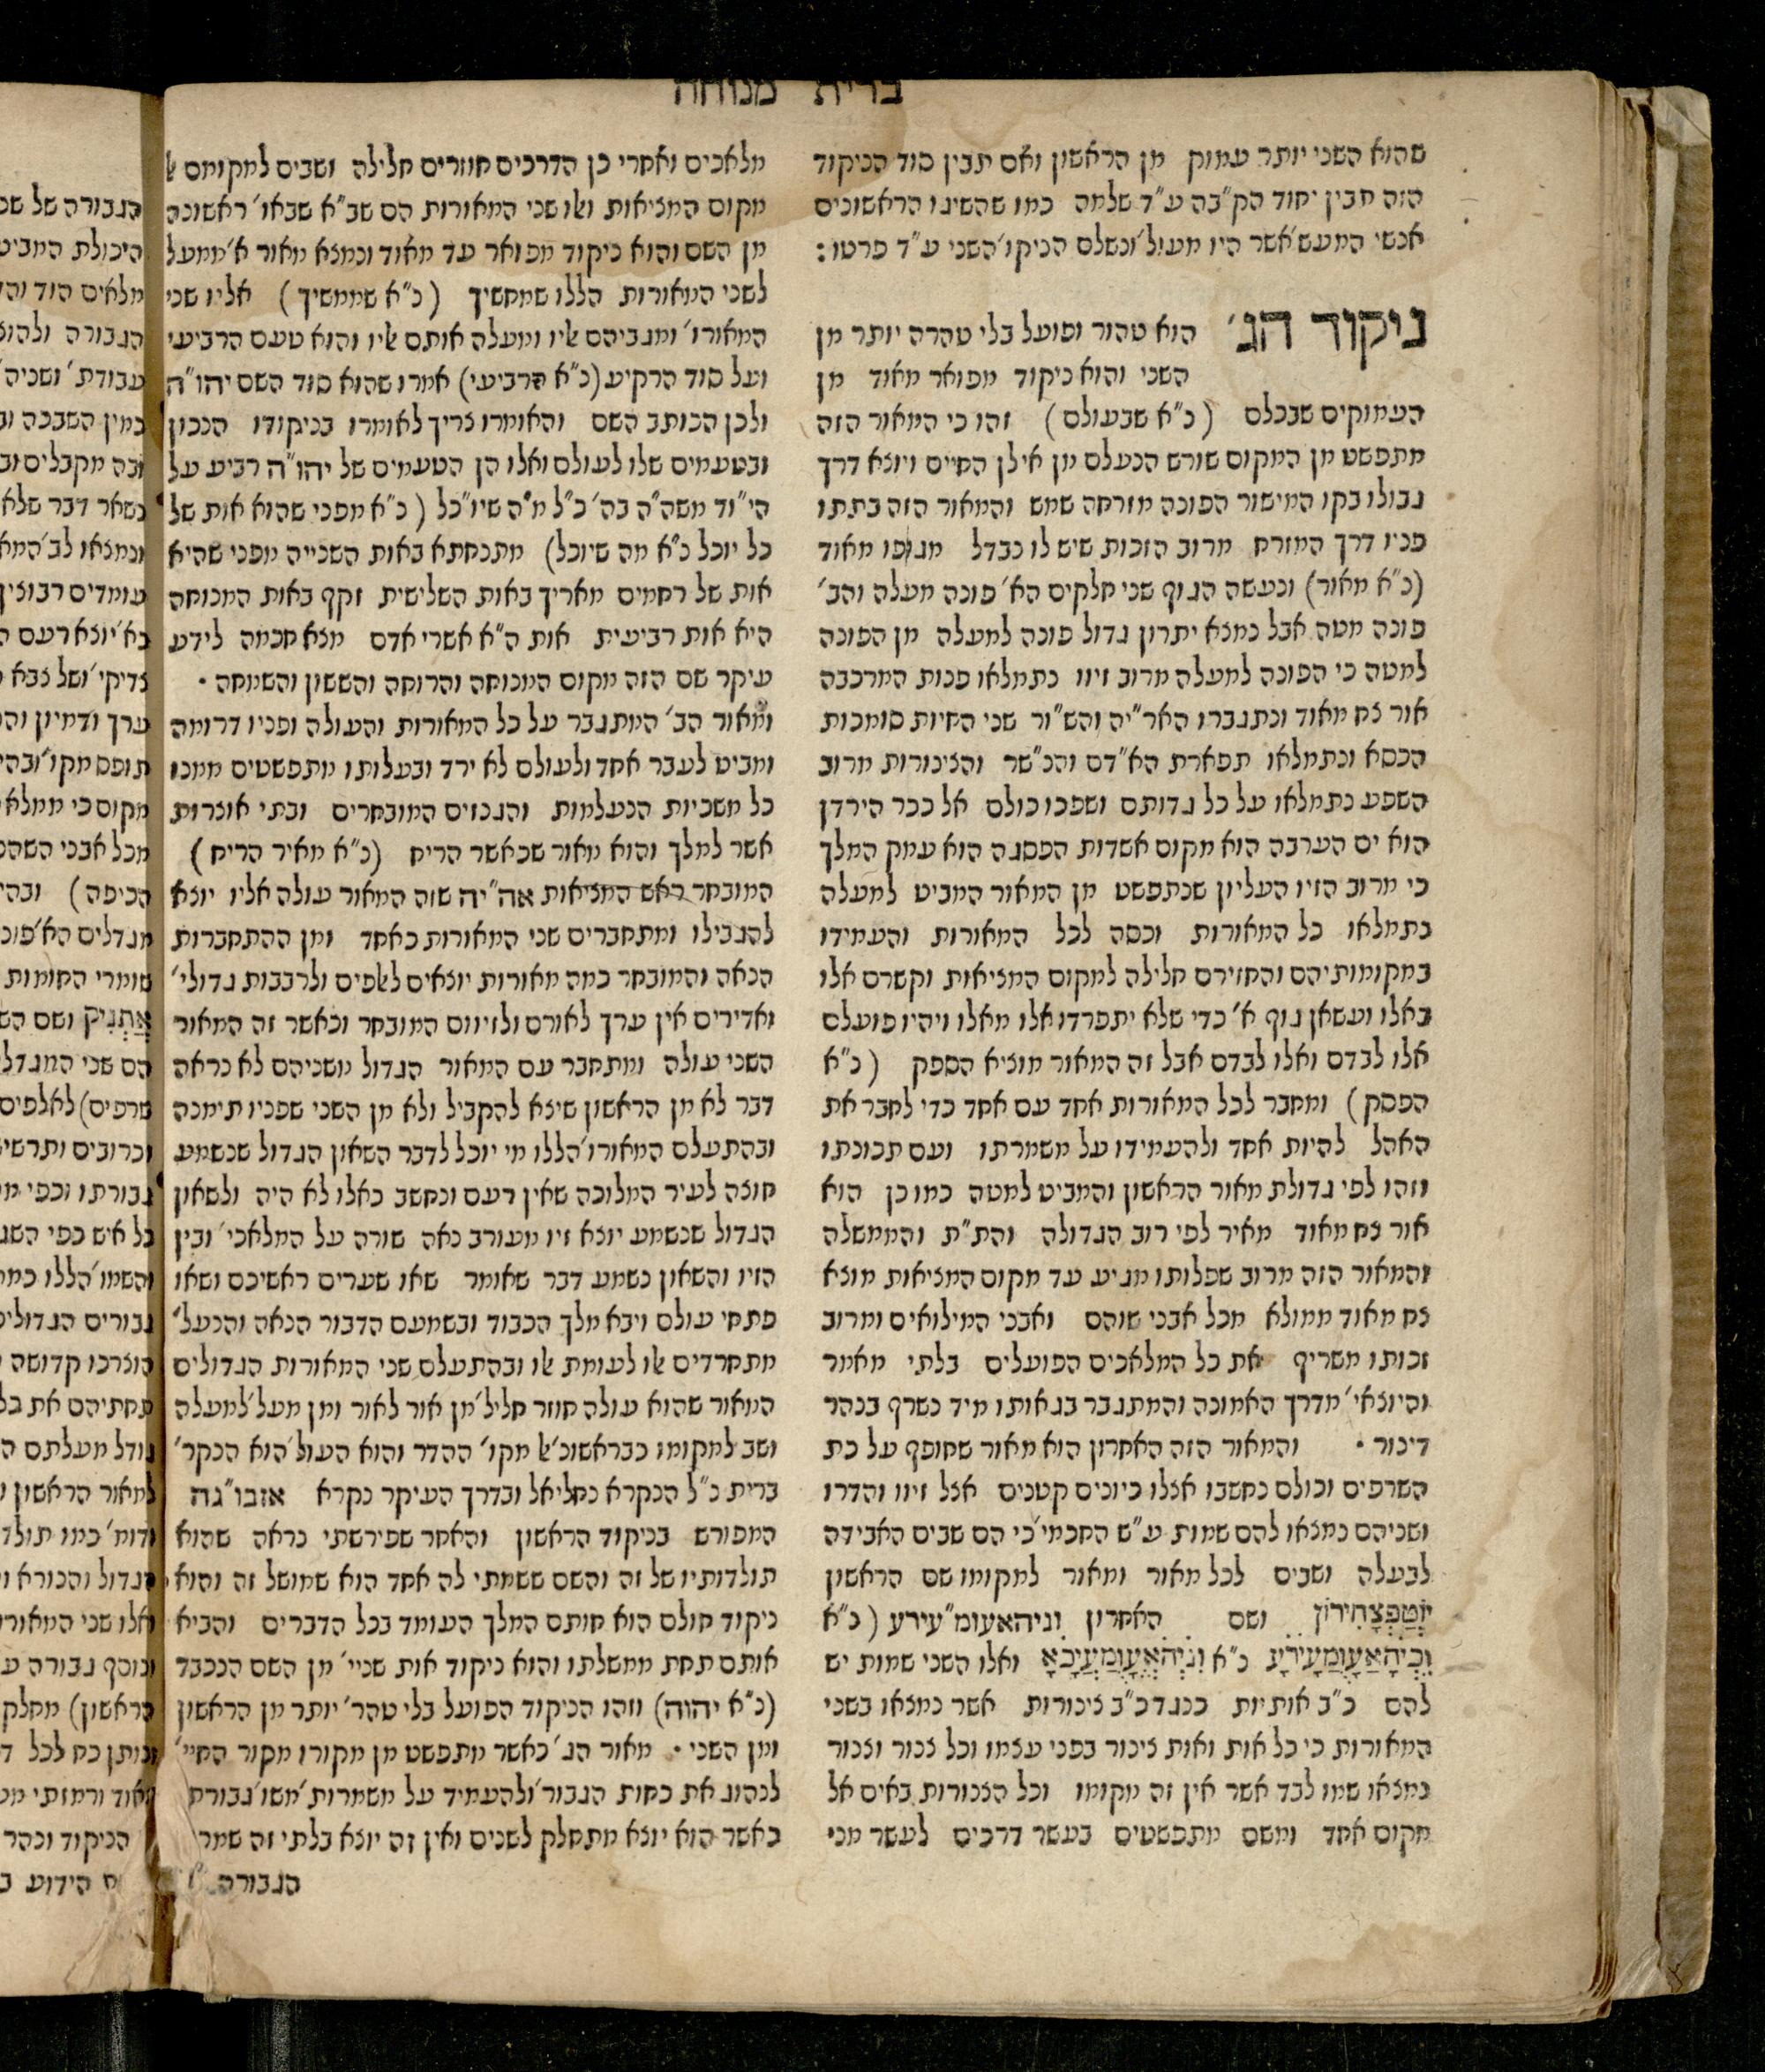 ברית מנוחה
שהוא השני יותר עמוק מן הראשון ואם תבין סוד הניקוד
הזה תבין יחוד הק"בה ע"ד שלמה כמו שהשיגו הראשונים
אנשי המעש'אשר היו מעול'ונשלם הניקו'השני ע"ד פרטו:
ניקוד הג' הוא טהור ופועל בלי טהרה יותר מן
השני והוא ניקוד מפואר מאוד מן
העמוקים שבכלם (נ"א שבעולם) זהו כי המאור הזה
מתפשט מן המקום שורש הנעלם מן אילן החיים ויוצא דרך
גבולו בקו המישור הפונה מזרחה שמש והמאור הזה בתתו
פניו דרך המזרח מרוב הזכות שיש לו נבדל מגופו מאוד
(נ"א מאור) ונעשה הגוף שני חלקים הא' פונה מעלה והב'
פונה מטה אבל נמצא יתרון גדול פונה למעלה מן הפונה
למטה כי הפונה למעלה מרוב זיוו נתמלאו פנות המרכבה
אור צח מאוד ונתגברו האר"יה והש"ור שני החיות סומכות
הכסא ונתמלאו תפארת הא"דם והנ"שר והצינורות מרוב
השפע נתמלאו על כל גדותם ושפכו כולם אל ככר הירדן
הוא ים הערבה הוא מקום אשדות הפסגה הוא עמק המלך
כי מרוב הזיו העליון שנתפשט מן המאור המביט למעלה
נתמלאו כל המאורות וכסה לכל המאורות והעמידו
במקומותיהם והחזירם חלילה למקום המציאות וקשרם אלו
באלו ועשאן גוף א' כדי שלא יתפרדו אלו מאלו ויהיו פועלם
אלו לבדם ואלו לבדם אבל זה המאור מוציא הספק (נ"א
הפסק) ומחבר לכל המאורות אחד עם אחד כדי לחבר את
האהל להיות אחד ולהעמידו על משמרתו ועם תכונתו
וזהו לפי גדולת מאור הראשון והמביט למטה כמו כן הוא
אור צח מאוד מאיר לפי רוב הגדולה והת"ת והממשלה
והמאור הזה מרוב שפלותו מגיע עד מקום המציאות מוצא
צח מאוד ממולא מכל אבני שוהם ואבני המילואים ומרוב
זכותו משריף את כל המלאכים הפועלים בלתי מאמר
והיוצאי'מדרך האמונה והמתגבר בגאותו מיד נשרף בנהר
דינור • והמאור הזה האחרון הוא מאור שחופף על כת
השרפים וכולם נחשבו אצלו כיונים קטנים אצל זיוו והדרו
ושניהם נמצאו להם שמות ע"ש החכמי'כי הם שבים האבידה
לבעלה ושבים לכל מאור ומאור למקומו שם הראשון
יוטפצחירון ושם האחרון וניהאעומ"עירע (נ"א
וכיהאעומעירע נ"א וניהאעומעיכא ואלו השני שמות יש
להם כ"ב אותיות כנגד כ"ב צינורות אשר נמצאו בשני
המאורות כי כל אות ואות צינור בפני עצמו וכל צנור וצנור
נמצאו שמו לבד אשר אין זה מקומו וכל הצנורות באים אל
מקום אחד ומשם מתפשטים בעשר דרכים לעשר מכי
מלאכים ואחרי כן הדרכים חוזרים חלילה ושבים למקומם אל
מקום המציאות ואלו שני המאורות הם שב"א שבאו'ראשונה
מן השם והוא ניקוד מפואר עד מאוד ונמצא מאור א'ממעל
לשני המאורות הללו שמחשיך (נ"א שממשיך) אליו שני
המאורו'ומגביהם אליו ומעלה אותם אליו והוא טעם הרביעי
ועל סוד הרקיע (נ"א הרביעי) אמרו שהוא סוד השם יהו"ה
ולכן הכותב השם והאומרו צריך לאומרו בניקודו הנכון
ובטעמים שלו לעולם ואלו הן הטעמים של יהו"ה רביע על
הי"וד משה"ה בה' נ"ל מ"ה שיו"כל (נ"א מפני שהוא אות של
כל יוכל נ"א מה שיוכל) מתנחתא באות השנייה מפני שהיא
אות של רחמים מאריך באות השלישית זקף באות המנוחה
היא אות רביעית אות ה"א אשרי אדם מצא חכמה לידע
עיקר שם הזה מקום המנוחה והרוחה והששון והשמחה •
ומאור הב' המתגבר על כל המאורות והעולה ופניו דרומה
ומביט לעבר אחד ולעולם לא ירד ובעלותו מתפשטים ממנו
כל משכיות הנעלמות והגנזים המובחרים ובתי אוצרות
אשר למלך והוא מאור שכאשר הריח (נ"א מאיר הריח)
המובחר ראש המציאות אה"יה שזה המאור עולה אליו יוצא
להגבילו ומתחברים שני המאורות כאחד ומן ההתחברות
הנאה והמובחר כמה מאורות יוצאים לאלפים ולרבבות גדולי'
ואדירים אין ערך לאורם ולזיוום המובחר וכאשר זה המאור
השני עולה ומתחבר עם המאור הגדול משניהם לא נראה
דבר לא מן הראשון שיצא להקביל ולא מן השני שפניו תימנה
ובהתעלם המאורו'הללו מי יוכל לדבר השאון הגדול שנשמע
חוצה לעיר המלוכה שאין רעם ונחשב כאלו לא היה ולשאון
הגדול שנשמע יוצא זיו מעורב נאה שורה על המלאכי' ובין
הזיו והשאון נשמע דבר שאומר שאו שערים ראשיכם ושאו
פתחי עולם ויבא מלך הכבוד ובשמעם הדבור הנאה והנעל'
מתחרדים אלו לעומת אלו ובהתעלם שני המאורות הגדולים
המאור שהוא עולה חוזר חליל'מן אור לאור ומן מעל'למעלה
ושב למקומו כבראשונ'אל מקו' ההדר והוא העול'הוא הנקר'
ברית נ"ל הנקרא נחליאל ובדרך העיקר נקרא אזבו"גה
המפורש בניקוד הראשון והאחר שפירשתי נראה שהוא
תולדותיו של זה והשם ששמתי לה אחד הוא שמושל זה והוא
ניקוד חולם הוא חותם המלך העומד בכל הדברים והביא
אותם תחת ממשלתו והוא ניקוד אות שניי' מן השם הנכבד
(נ"א יהוה) וזהו הניקוד הפועל בלי טהר' יותר מן הראשון
ומן השני • מאור הג'כאשר מתפשט מן מקורו מקור החיי'
לנהוג את כחות הגבור'ולהעמיד על משמרות'משו'גבורת
כאשר הוא יוצא מתחלק לשנים ואין זה יוצא בלתי זה שמר
הגבורה
הגבורה של שם
היכולת המביט
מלאים הוד והד
הגבורה ולהוצ
עבודת' ושניה'
כמין השבכה וב
ובה מקבלים וב
כשאר דבר שלא
ונמצאו לב'המא
עומדים רבוצין
בא'יוצא רעם ה
צדיקי'ושל צבא
ערך ודמיון וה
תופס מקו'ובהי
מקום כי ממלא
מכל אבני השהם
הכיפה) ובהי
מגדלים הא'פונ
שומרי החומות
אתניק ושם הש
הם שני המגדלי
שרפים) לאלפים
וכרובים ותרשי
גבורתו וכפי מ
כל איש כפי השג
והשמו'הללו כמו
גבורים הגדולים
הוצרכו קדושה
תחתיהם את בל
גודל מעלתם ה
למאור הראשון ו
ודומ'כמו תולד
הגדול והנורא ו
ואלו שני המאורו
ונוסף גבורה ע
הראשון) מחלק
ונותן כח לכל ד
מאוד ורמזתי מט
הניקוד ונהר
הידוע ב